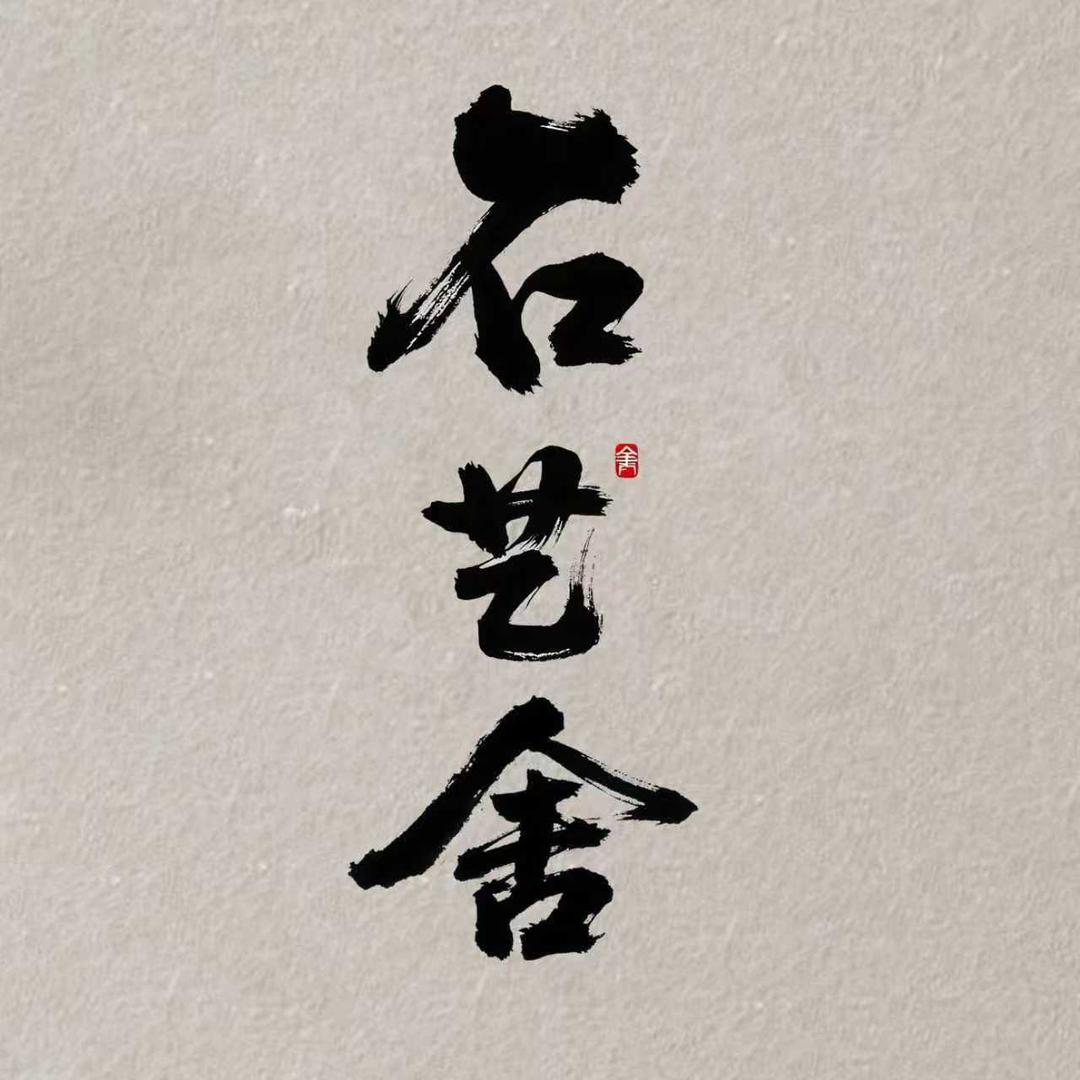 石艺舍